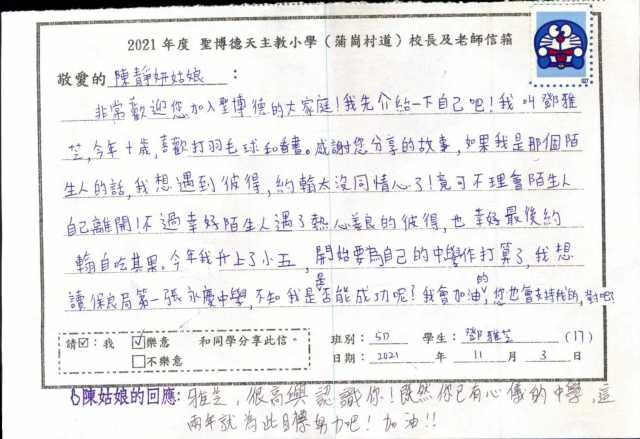 2021 年度 聖博德天主教小學（蒲崗村道）校長及老師信箱
敬愛的 陳靜妍姑娘 :
非常歡迎您加入聖博德的大家庭!我先介紹一下自己吧!我叫鄧雅
芝,今年十歲,喜歡打羽毛球和看書。感謝您分享的故事,如果我是那個陌
生人的話,我想遇到彼得,約翰太沒同情心了!竟可不理會陌生人
自己離開!不過幸好陌生人遇了熱心善良的彼得,也幸好最後約
翰自吃其果。今年我升上了小五,開始要為自己的中學作打算了,我想
讀保良局第一張永慶中學,不知我是否能成功呢?我會加油的,您也會支持我的,對吧?
請☑：我 ☑樂意 和同學分享此信。 班別： 5D 學生： 鄧雅芝 (17)
□不樂意 日期： 2021 年 11 月 3 日
陳姑娘的回應: 雅芝，很高興認識你!既然你已有心儀的中學,這
兩年就為此目標努力吧!加油!!